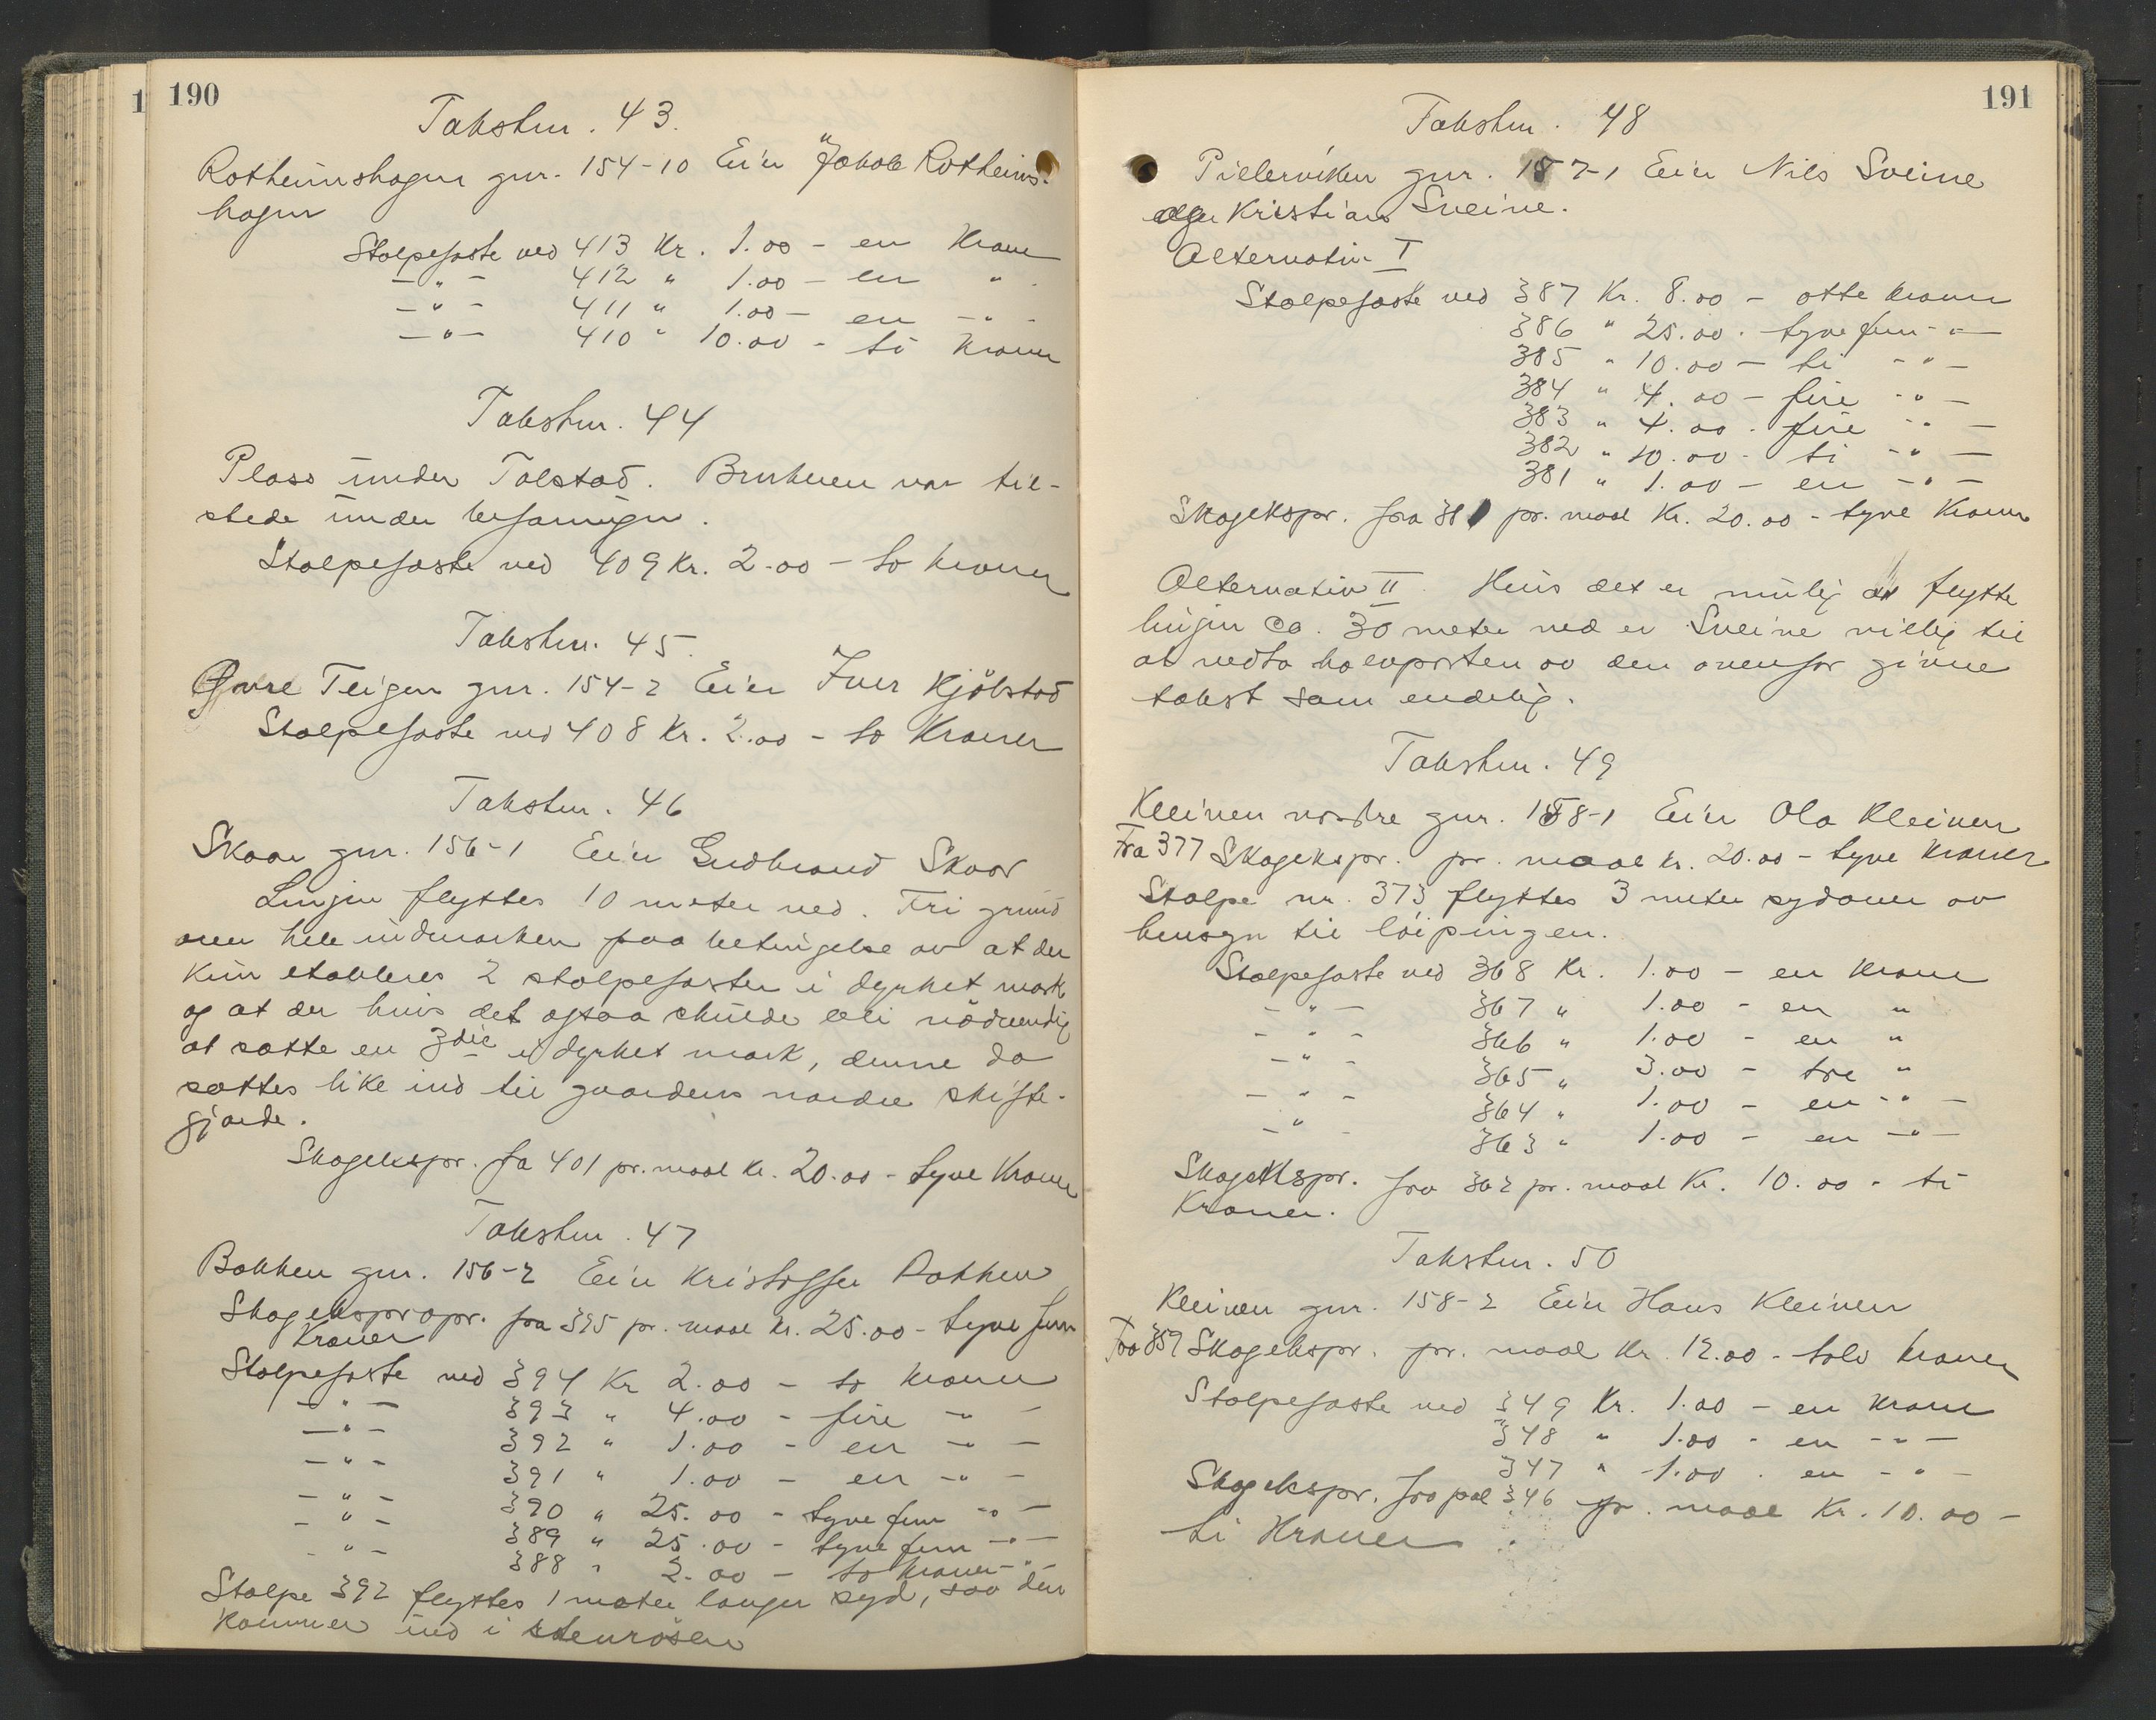 190
Takstnr. 43.
Rotheimshagen gnr. 154-10 Eier Jakob Rotheims-
hagen
Stolpefæste ved 413 Kr. 1.00 - en Krone
-"- 412 " 1.00 - en "
-"- 411 " 1.00 - en -"-
-"- 410 " 10.00 - ti Kroner
Takstnr. 44
Plass under Tolstad. Brukeren var til-
stede under befaringen.
Stolpefæste ved 409 Kr. 2.00 - to kroner
Takstnr. 45.
Øvre Teigen gnr. 154-2 Eier Iver Kjölstad
Stolpefæste ved 408 Kr. 2.00 - to Kroner
Takstnr. 46
Skaar gnr. 156-1 Eier Gudbrand Skaar
Linjen flyttes 10 meter ned. Fri grund
over hele indmarken paa betingelse av at der
kun etableres 2 stolpefæster i dyrket mark
og at der hvis det ogsaa skulde bli nödvendig
at sætte en 3die i dyrket mark, denne da
sættes like ind til gaardens nordre skifte-
gjærde.
Skogekspr. fra 401 pr. maal kr. 20.00 - tyve Kroner
Takstnr. 47
Bakken gnr. 156-2 Eier Kristoffer Bakken
Skogekspropr. fra 395 pr. maal kr. 25.00 - tyve fem
Kroner
Stolpefæste ved 394 Kr 2.00 - to kroner
-"- 393 " 4.00 - fire -"-
-"- 392 " 1.00 - en -"-
-"- 391 " 1.00 - en -"-
-"- 390 " 25.00 - tyve fem -"-
-"- 389 " 25.00 - tyve fem -"-
-"- 388 " 2.00 - to kroner -"-
Stolpe 392 flyttes 1 meter længer syd, saa den
kommer ind i stenrösen
191
Takstnr. 48
Pillerviken gnr. 157-1 Eier Nils Sveine
og Kristian Sveine.
Alternativ I
Stolpefæste ved 387 Kr. 8.00 - otte kroner
386 " 25.00 - tyve fem -"-
385 " 10.00 - ti -"-
384 " 4.00 - fire -"-
383 " 4.00 - fire -"-
382 " 10.00 - ti -"-
381 " 1.00 - en -"-
Skogekspr. fra 381 pr. maal Kr. 20.00 - tyve Kroner
Alternativ II. Hvis det er mulig at flytte
linjen ca. 30 meter ned er Sveine villig til
at vedta halvparten av den ovenfor givne
takst som endelig.
Takstnr. 49
Kleiven nordre gnr. 158-1 Eier Ola Kleiven
Fra 377 Skogekspr. pr. maal kr. 20.00 - tyve kroner
Stolpe nr. 373 flyttes 3 meter sydover av
hensyn til löipingen.
Stolpefæste ved 368 Kr. 1.00 - en krone
-"- 367 " 1.00 - en "
-"- 366 " 1.00 - en "
-"- 365 " 3.00 - tre "
-"- 364 " 1.00 - en -"-
-"- 363 " 1.00 - en -"-
Skogekspr. fra 362 pr. maal Kr. 10.00 - ti
Kroner.
Takstnr. 50
Kleiven gnr. 158-2 Eier Hans Kleiven
Fra 359 Skogekspr. pr. maal Kr. 12.00 - tolv kroner
Stolpefæste ved 349 Kr. 1.00 - en krone
348 " 1.00 - en -"-
347 " 1.00 - en -"-
Skogekspr. fra pæl 346 pr. maal Kr. 10.00 -
ti Kroner.